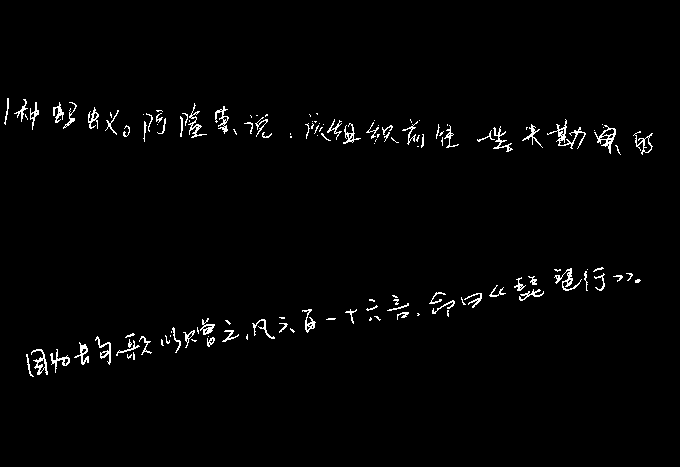 1种蚂蚁。阿隆索说,该组织前往一些未勘察的
因为长句,歌以赠之,凡六百一十六言,命曰《琵琶行》。